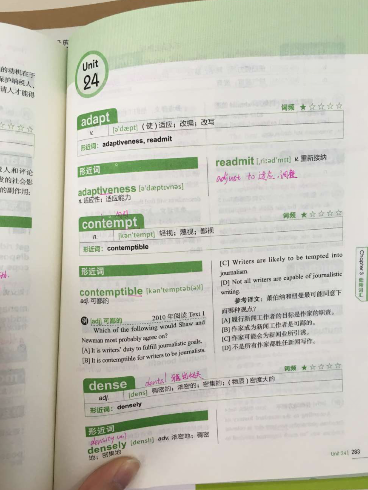 的动机在于
保护纳税人,
请人才能得
人和评论
的社会影
的副作用:
Unit
24
adapt
词频 ★☆☆☆☆
v. [ə'dæpt] (使)适应;改编;改写
形近词: adaptiveness, readmit
形近词
adaptiveness [ə'dæptɪvnəs]
n.适应性;适应能力
readmit [ˌriːəd'mɪt] v.重新接纳
adjust to 适应,调整
contempt
词频 ★☆☆☆☆
n. [kən'tempt] 轻视;蔑视;鄙视
形近词: contemptible
形近词
contemptible [kən'temptəb(ə)l]
adj.可鄙的
例 adj.可鄙的 2010年阅读 Text 1
Which of the following would Shaw and
Newman most probably agree on?
[A] It is writers' duty to fulfil journalistic goals.
[B] It is contemptible for writers to be journalists.
[C] Writers are likely to be tempted into
journalism.
[D] Not all writers are capable of journalistic
writing.
参考译文:萧伯纳和纽曼最可能同意下
面哪种观点?
[A] 履行新闻工作者的目标是作家的职责。
[B] 作家成为新闻工作者是可鄙的。
[C] 作家可能会为新闻业所引诱。
[D] 不是所有作家都胜任新闻写作。
dense
词频 ★☆☆☆☆
adj. [dens] 稠密的;浓密的;密集的;(物质)密度大的
形近词: densely
形近词
density n.
densely ['densli] adv.浓密地;稠密
地;密集地
Unit 24
283